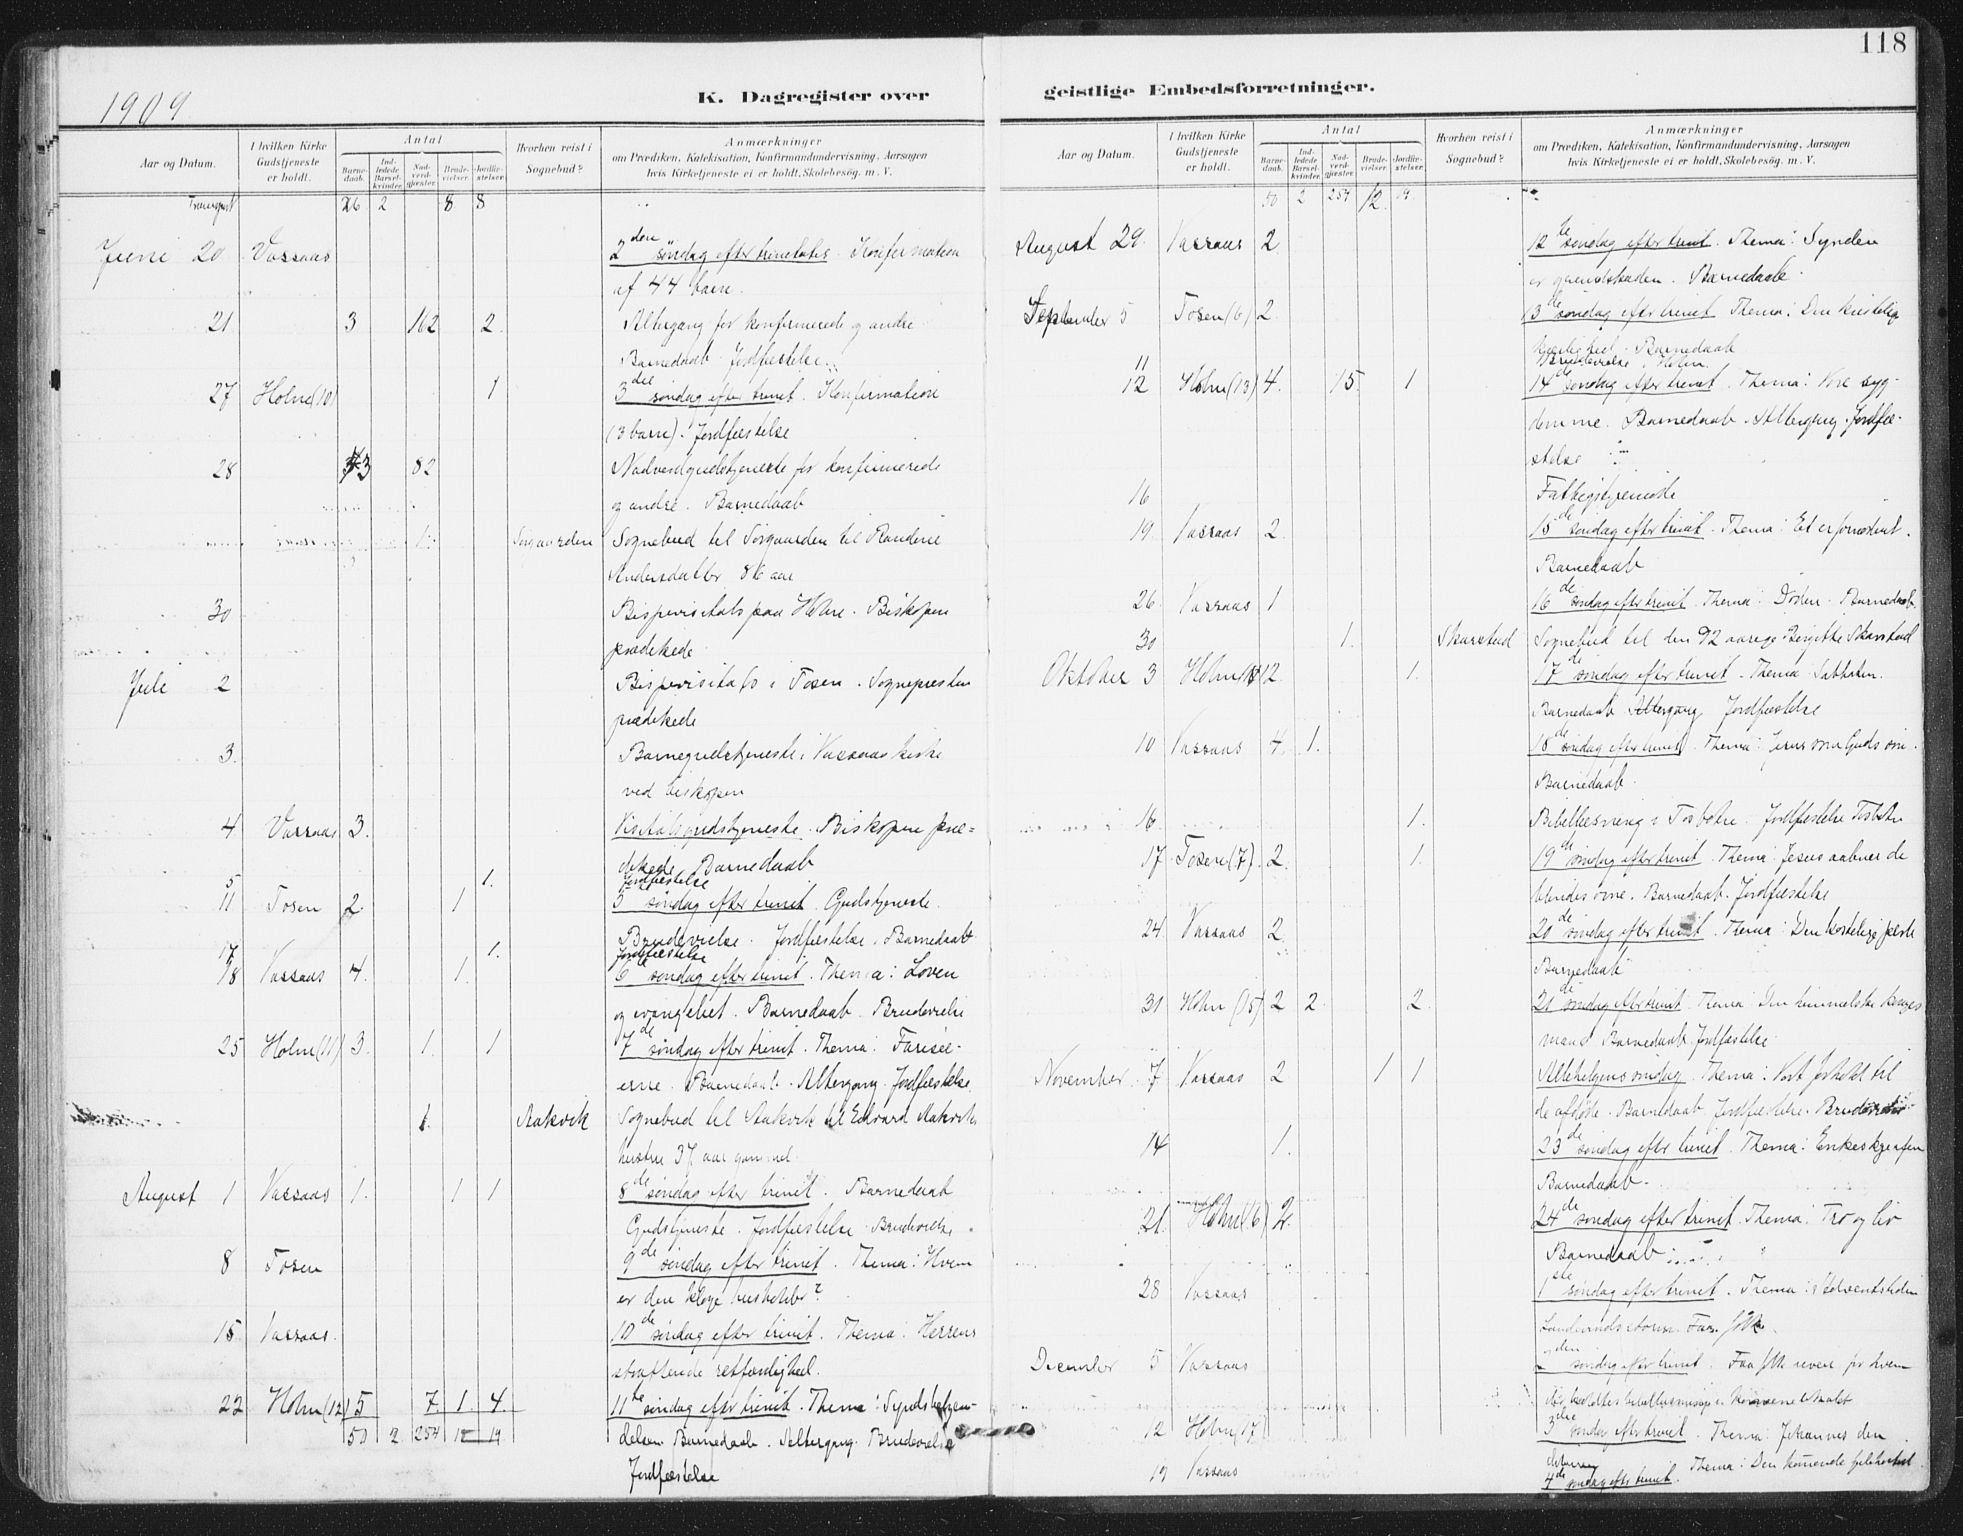 118
1909
K. Dagregister over
geistlige Embedsforretninger.
Aar og Datum.
I hvilken Kirke Gudstjeneste er holdt.
Antal
Barnedaab.
Indledede Barselkvinder.
Nadverdgjæster.
Brudevielser.
Jordfæstelser.
Hvorhen reist i Sognebud?
Anmærkninger
om Prædiken, Katekisation, Konfirmandundervisning, Aarsagen
hvis Kirketjeneste ei er holdt, Skolebesøg. m. V.
Transport 26 2 8 8
Juni 20 Vassaas 2den søndag efter trinitatis. Konfirmation
af 44 barn.
21 3 162 2 Altergang for konfirmerede og andre.
Barnedaab. Jordfæstelse
27 Holm (10) 1 3die søndag efter trinit. Konfirmation
(3 barn). Jordfæstelse
28 3 82 Nadverdgudstjeneste for konfirmerede
og andre. Barnedaab
1 Sørgaarden Sognebud til Sørgaarden til
Andersdatter 86 aar
30 Bispevisitats paa Holm. Biskopen
prædikede.
Juli 2 Bispevisitats i Tosen. Sognepresten
prædikede
3. Barnegudstjeneste i Vassaas kirke
ved biskopen
4 Vassaas 3. Visitatsgudstjeneste. Biskopen præ=
dikede Barnedaab
5 1. Jordfæstelse
11 Tosen 2 1 5 søndag efter trinit. Gudstjeneste.
Brudevielse. Jordfæstelse. Barnedaab
17 1. Jordfæstelse
18 Vassaas 4. 1. 6 søndag efter trinit. Thema: Loven
og evangeliet. Barnedaab. Brudevielse
25 Holm (11) 3. 1. 1 7de søndag efter trinit. Thema: Farisæ-
erne. Barnedaab. Altergang. Jordfæstelse
1. Aakvik Sognebud til Aakvik til Edvard Aakviks
hustru 37 aar gammel.
August 1 Vassaas 1. 1 1 8de søndag efter trinit. Barnedaab
Gudstjeneste. Jordfæstelse. Brudevielse.
8 Tosen 9de søndag efter trinit. Thema: Hvem
er den kloge husholder?
15. Vassaas. 10de søndag efter trinit. Thema: Herrens
straffende retfærdighed.
22 Holm (12) 5 7 1. 4. 11te søndag efter trinit. Thema: Synds bekjen-
50 2 254 12 19 delsen Barnedaab. Altergang. Brudevielse
Jordfæstelse
Aar og Datum.
I hvilken Kirke Gudstjeneste er holdt.
Antal
Barnedaab.
Indledede Barselkvinder.
Nadverdgjæster.
Brudevielser.
Jordfæstelser.
Hvorhen reist i Sognebud?
Anmærkninger
om Prædiken, Katekisation, Konfirmandundervisning, Aarsagen
hvis Kirketjeneste ei er holdt, Skolebesøg. m. V.
50 2 254 12. 19.
August 29. Vassaas 2 12te søndag efter trinit. Thema: Synden
er grundskaden. Barnedaab.
September 5 Tosen (6) 2 13de søndag efter trinit Thema: Den kristelige
kjærlighed. Barnedaab
11 Brudevielse i Holm.
12 Holm (13) 4. 15. 1 14de søndag efter trinit. Thema: Vore syg-
domme. Barnedaab. Altergang. Jordfæ-
stelse
16 Fattigstyremøde
19. Vassaas 2. 15de søndag efter trinit. Thema: Et er fornødent.
Barnedaab
26. Vassaas 1 16de søndag efter trinit. Thema: Døden. Barnedaab.
30 1. Skarstad Sognebud til den 92 aarige Birgitte Skarstad
Oktober 3 Holm 2. 1. 17de søndag efter trinit. Thema: Sabbaten.
Barnedaab. Altergang Jordfæstelse
10 Vassaas 4. 1. 18de søndag efter trinit. Thema: Jesus som Guds søn.
Barnedaab.
16. 1. Bibellæsning i Tosbotn. Jordfæstelse Tosbotn
17 Tosen (7). 2. 1. 19de søndag efter trinit. Thema: Jesus aabner de
blindes øine. Barnedaab. Jordfæstelse
24. Vassaas 2. 20de søndag efter trinit. Thema: Den kostelige perle
Barnedaab
31 Holm (15) 2 2. 2. 21de søndag efter trinit. Thema: Den himmelske konges
Barnedaab. Jordfæstelse.
November. 7 Vassaas 2 1 1 Allehelgenssøndag. Thema: Vort forhold til
de afdøde. Barnedaab Jordfæstelse. Brudevielse
14 1. 23de søndag efter trinit. Thema: Enkeskjærven
Barnedaab.
21. Holm (16) 2. 24de søndag efter trinit. Thema: Tro og liv
Barnedaab
28 Vassaas 1ste søndag efter trinit. Thema: Adventstiden
Landvindsstorm. Faa folk.
December 5 Vassaas 2den søndag efter trinit. Faa folk
12 Holm (17) 3die søndag efter trinit. Thema: Johannes den
19 Vassaas 4de søndag efter trinit. Thema: Den kommende